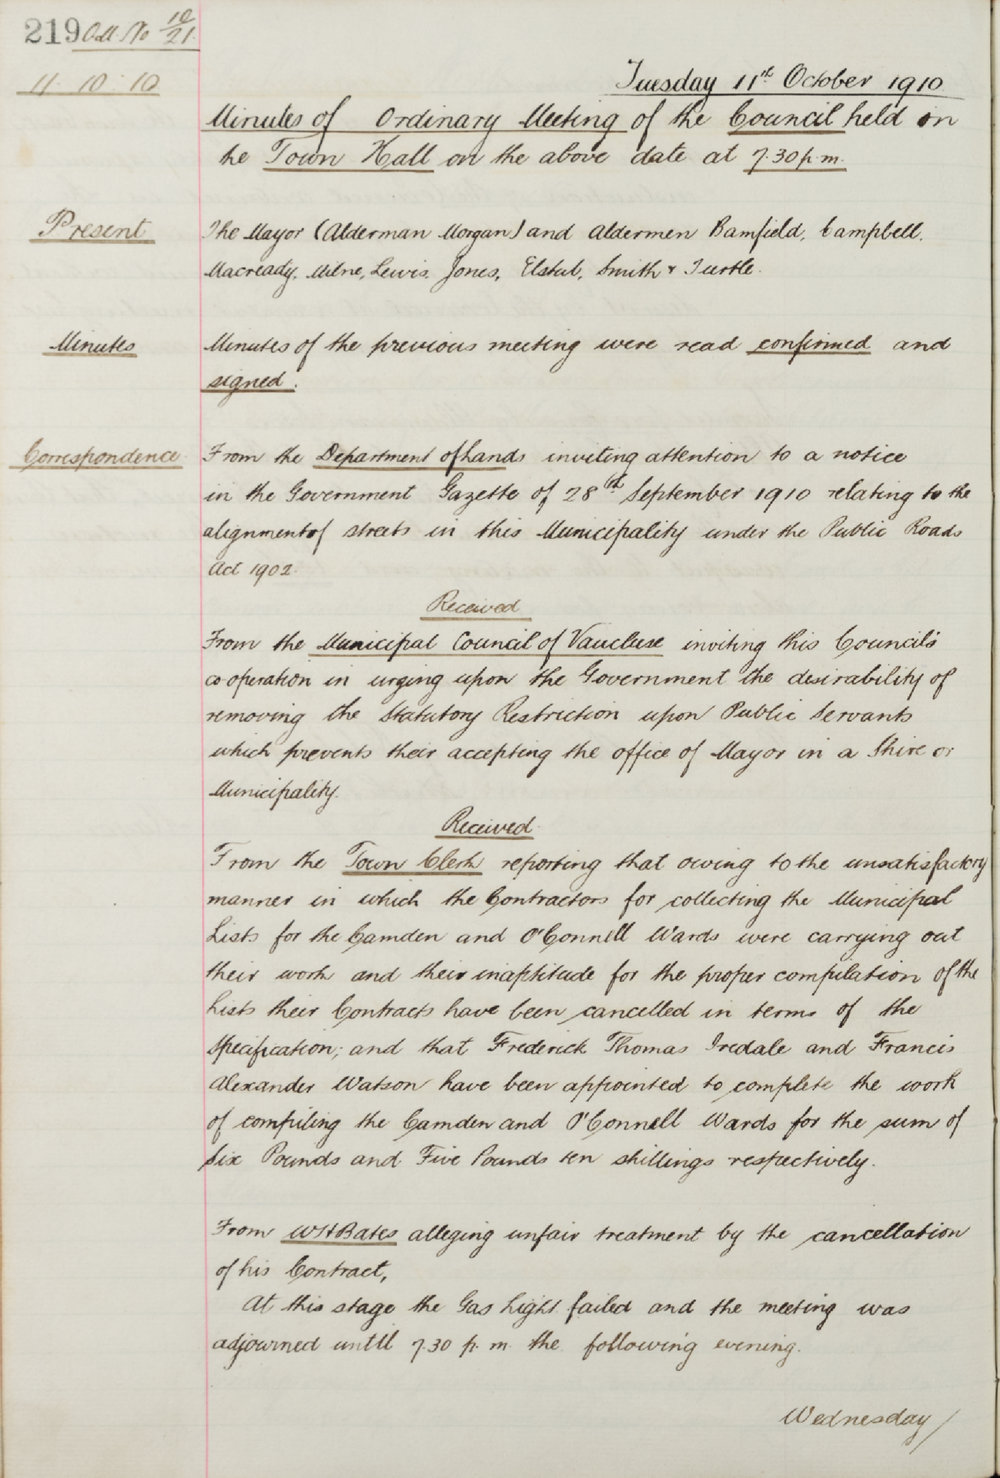 219 Ord. No 10/21
11. 10. 10
Tuesday 11th October 1910
Minutes of Ordinary Meeting of the Council held in
the Town Hall on the above date at 7.30 p.m.
Present
The Mayor (Alderman Morgan) and Aldermen Bamfield, Campbell,
Macready, Milne, Lewis, Jones, Elstub, Smith & Turtle.
Minutes
Minutes of the previous meeting were read confirmed and
signed.
Correspondence
From the Department of Lands inviting attention to a notice
in the Government Gazette of 28th September 1910 relating to the
alignment of streets in this Municipality under the Public Roads
Act 1902.
Received
From the Municipal Council of Vaucluse inviting this Council's
co operation in urging upon the Government the desirability of
removing the Statutory Restriction upon Public Servants
which prevents their accepting the office of Mayor in a Shire or
Municipality.
Received
From the Town Clerk reporting that owing to the unsatisfactory
manner in which the Contractors for collecting the Municipal
Lists for the Camden and O'Connell Wards were carrying out
their work and their inaptitude for the proper compilation of the
Lists their Contracts have been cancelled in terms of the
Specification; and that Frederick Thomas Iredale and Francis
Alexander Watson have been appointed to complete the work
of compiling the Camden and O'Connell Wards for the sum of
Six Pounds and Five Pounds ten shillings respectively.
From W H Bates alleging unfair treatment by the cancellation
of his Contract,
At this stage the Gas Light failed and the meeting was
adjourned until 7.30 p.m. the following evening.
Wednesday/